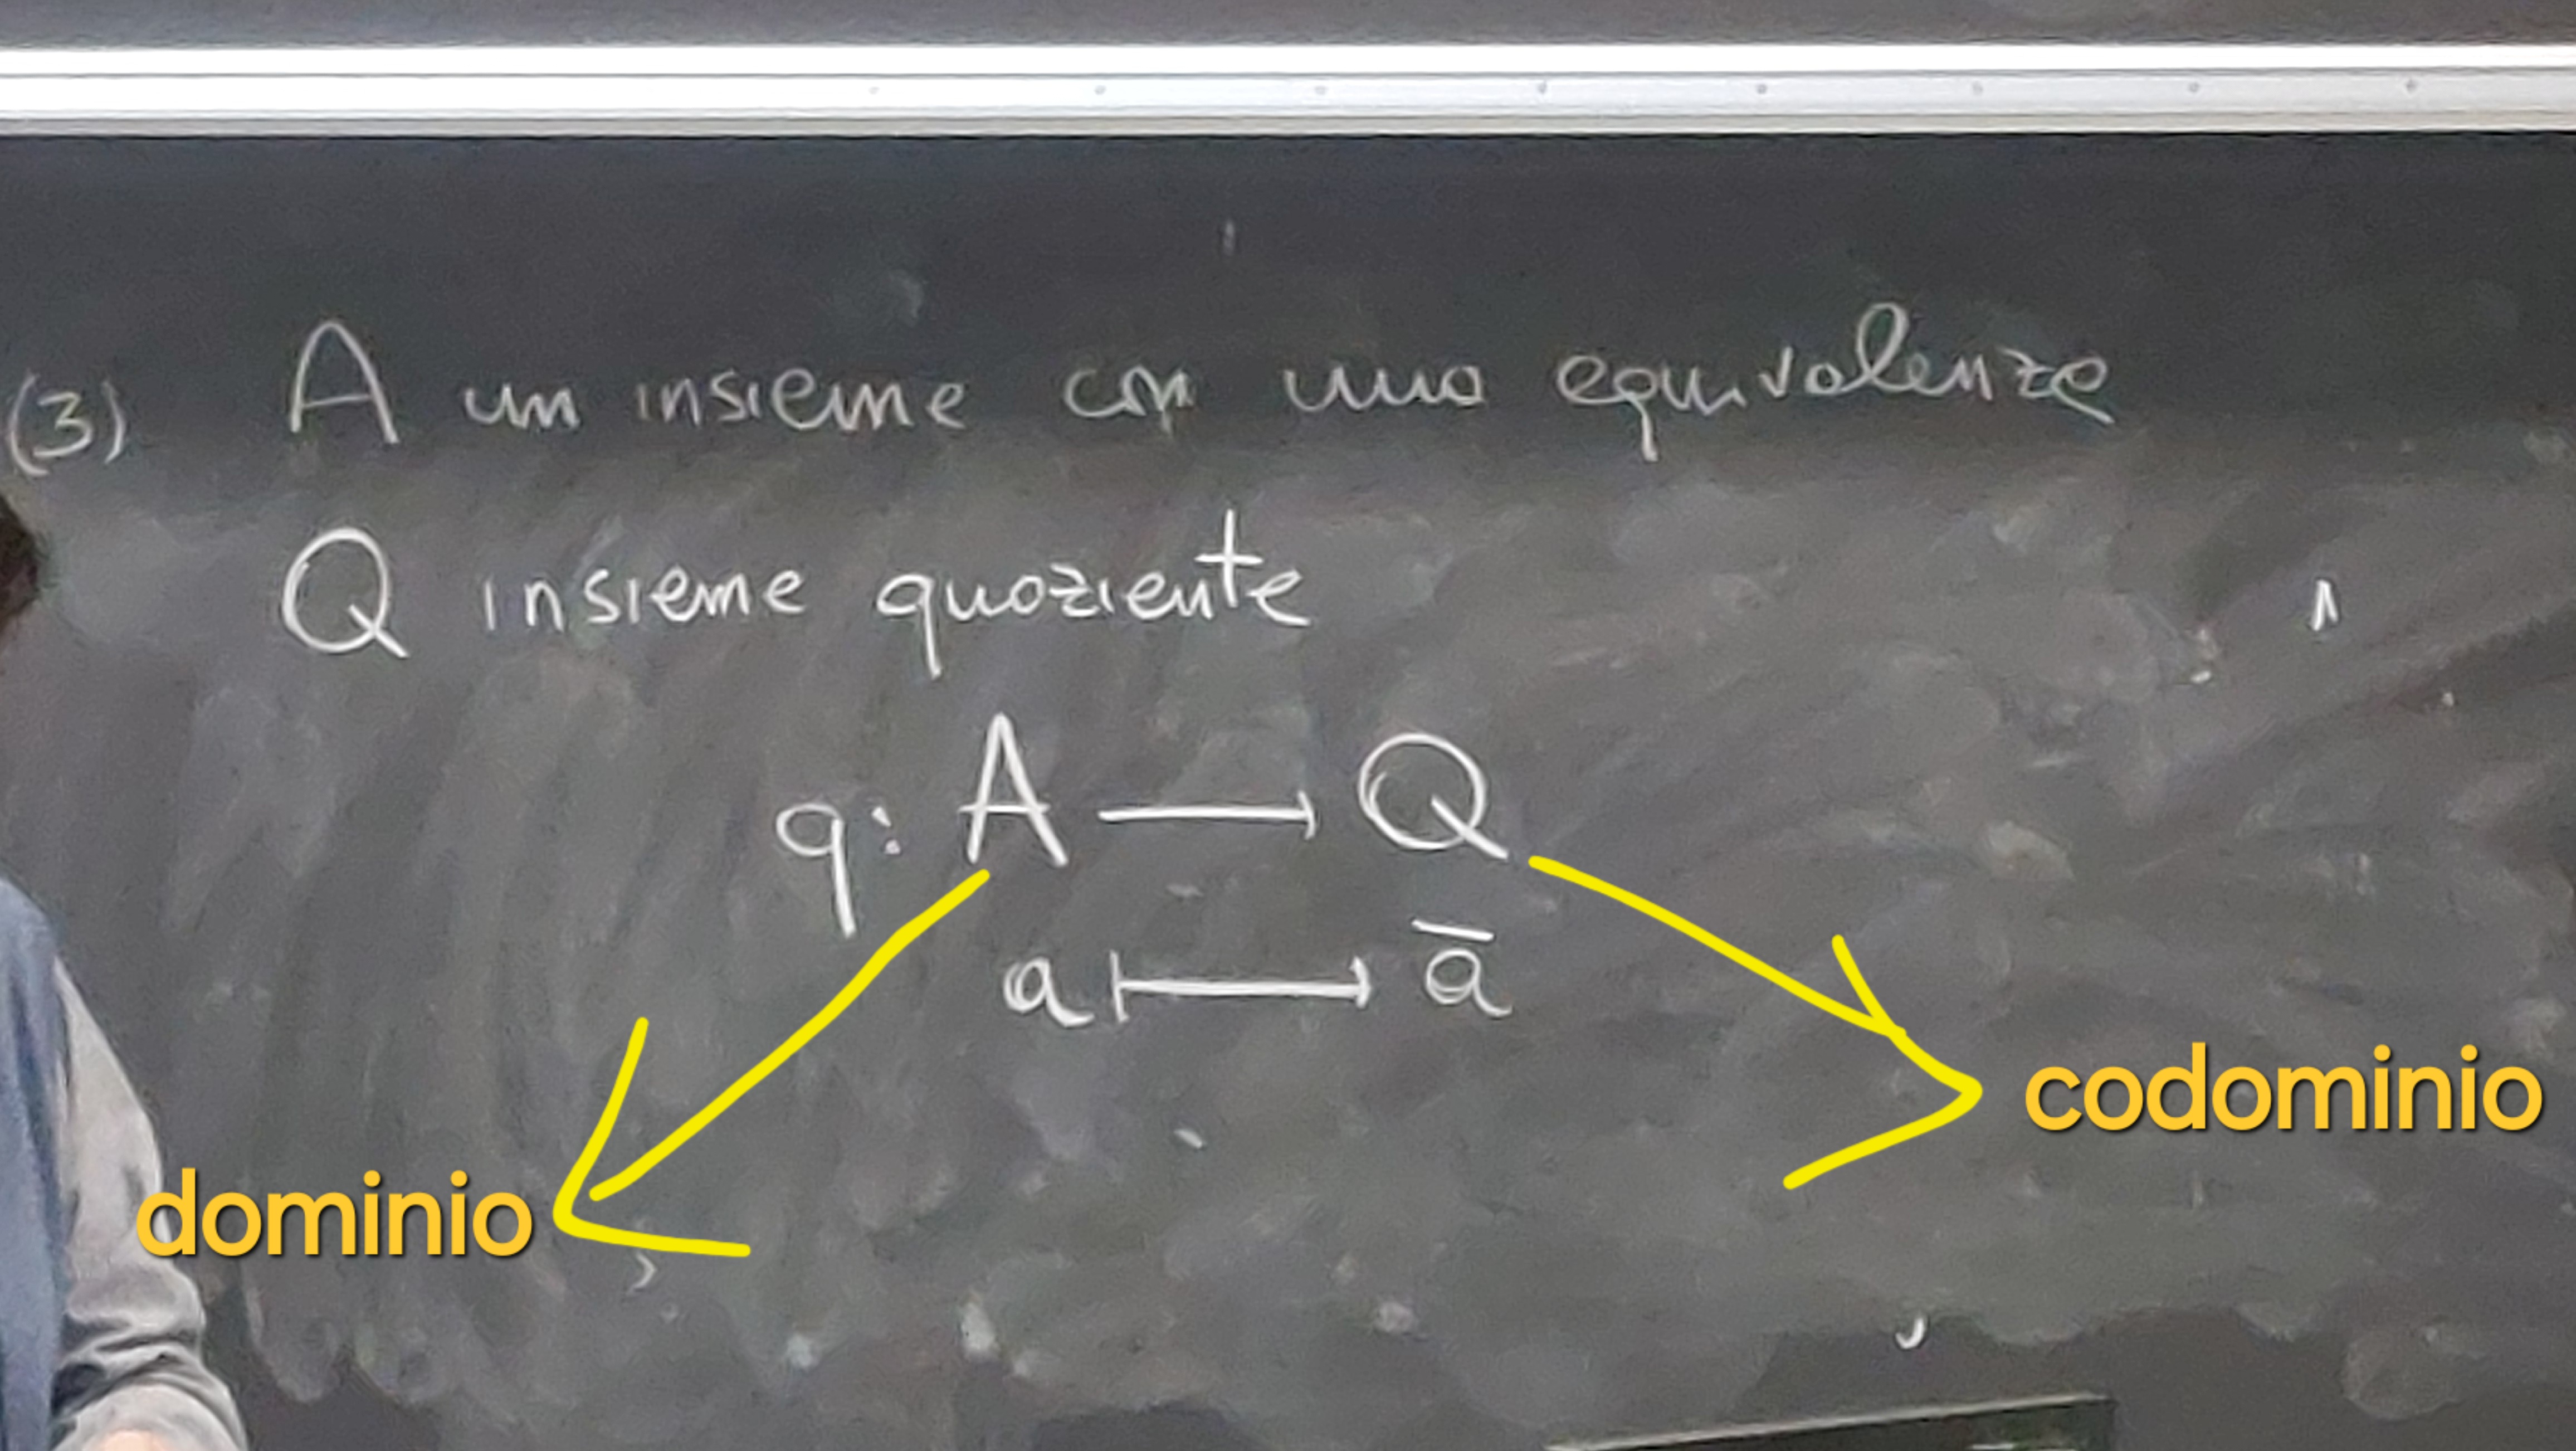 (3) A un insieme con una equivalenza
Q insieme quoziente
q: A → Q
a ↦ a̅
codominio
dominio